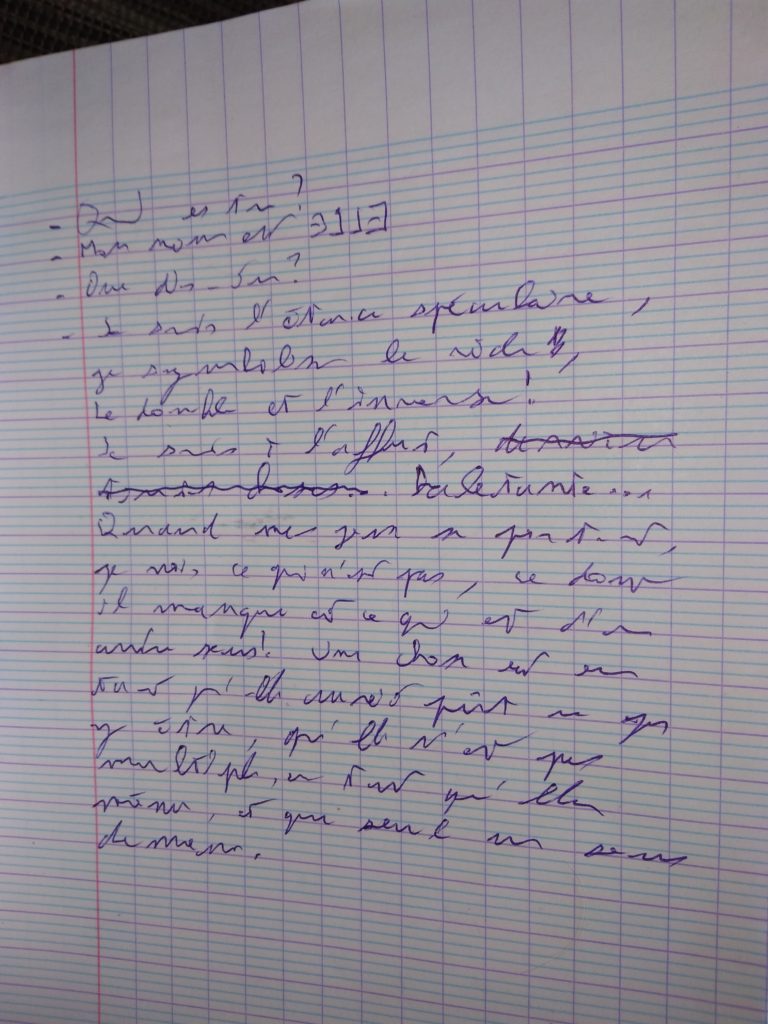 - Qui es tu ?
- Mon nom est ƎLLE
- Que dis-tu ?
- Je suis l'être spéculaire,
je symbolise le
le double et l'inverse !
Je suis à l'affût,
Haletante...
Quand me
je vois ce qui n'est pas, ce dont
il manque et ce qui est d'un
autre sens ! Une chose est en
tant qu'elle aurait pû
y être, qu'elle n'est pas
multiple, en tant qu'elle
même, et que seul un sens
demeure.